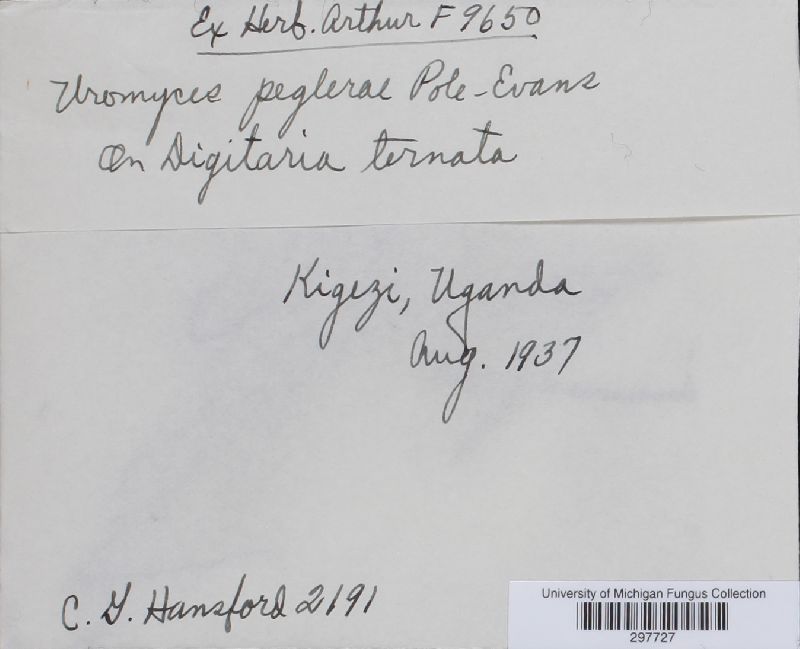 Ex Herb. Arthur F 9650
Uromyces peglerae Pole-Evans
On Digitaria ternata
Kigezi, Uganda
Aug. 1937
C. G. Hansford 2191
University of Michigan Fungus Collection
297727